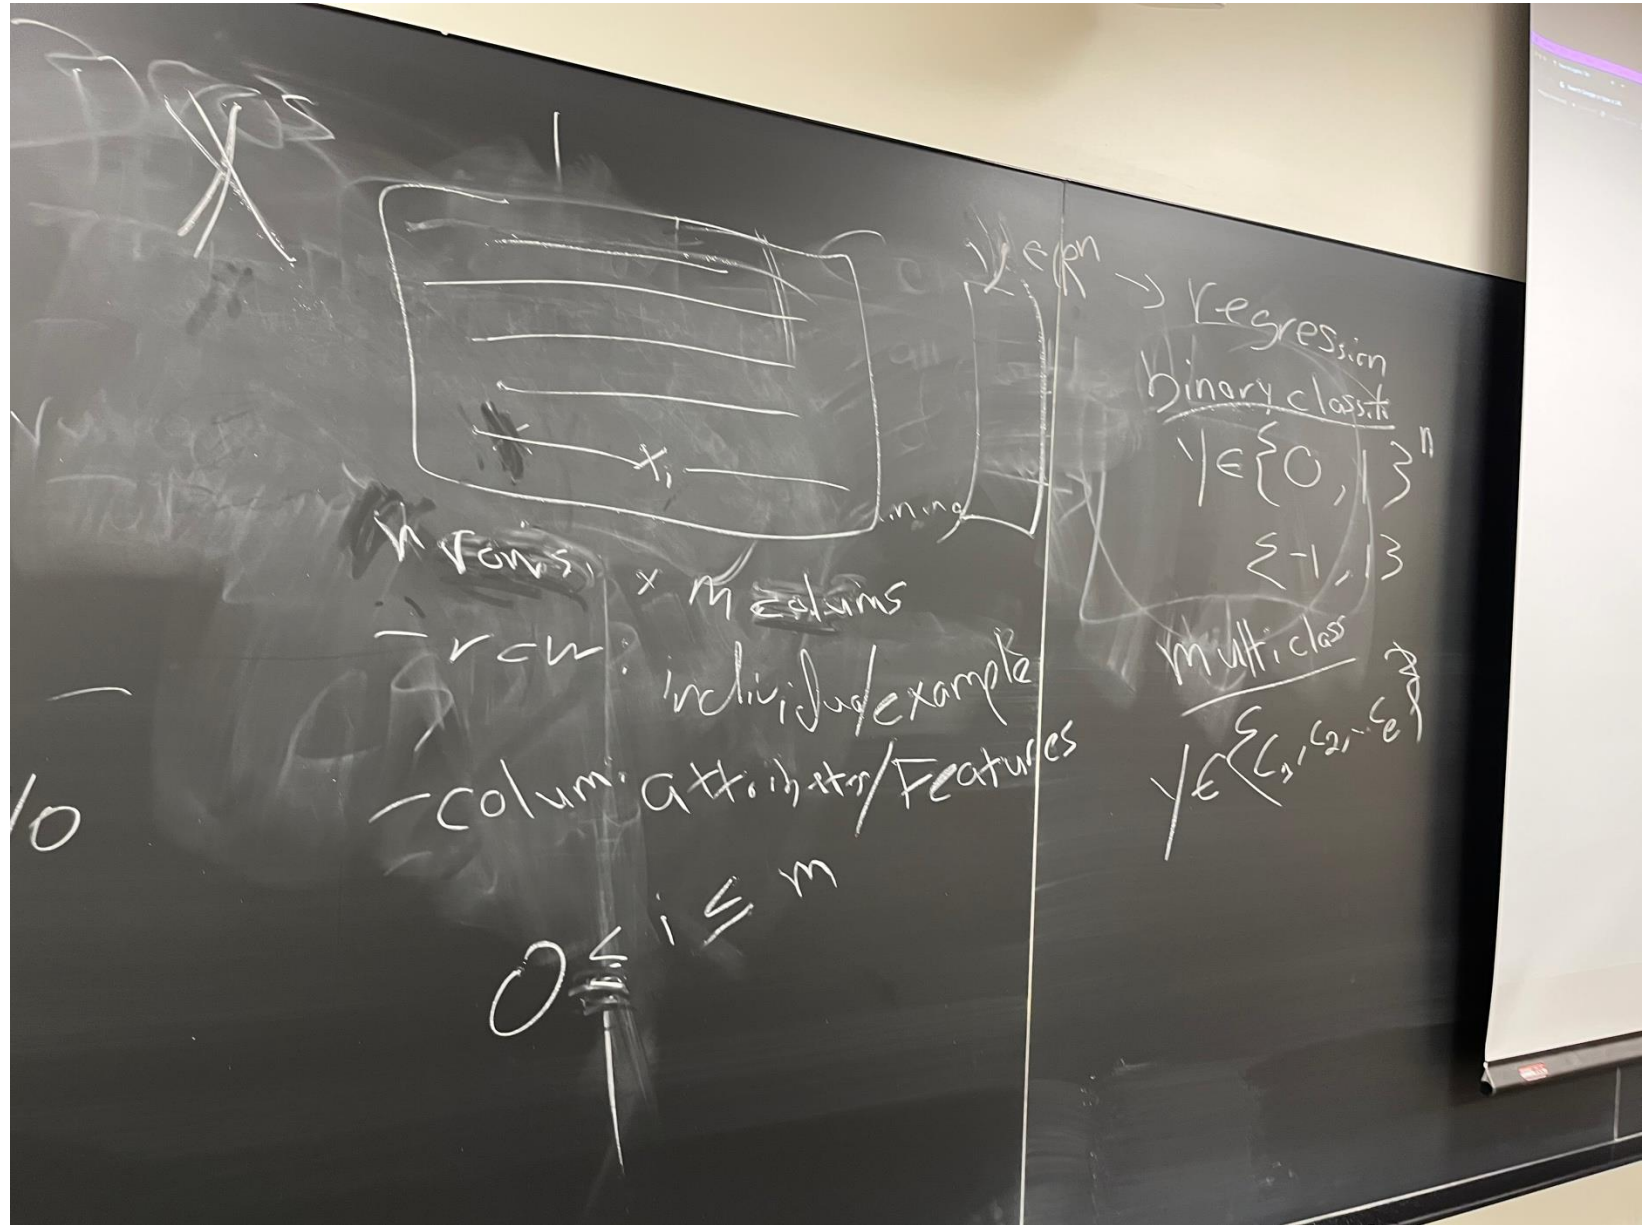 X
x_i
n rows × m colums
- row: individual example
- colum: attributes/Features
0 ≤ i ≤ m
10
y ∈ ℝ^n → regression
binary classifi
y ∈ {0, 1}^n
{-1, 1}
multiclass
y ∈ {c_1, c_2, ... c_e}